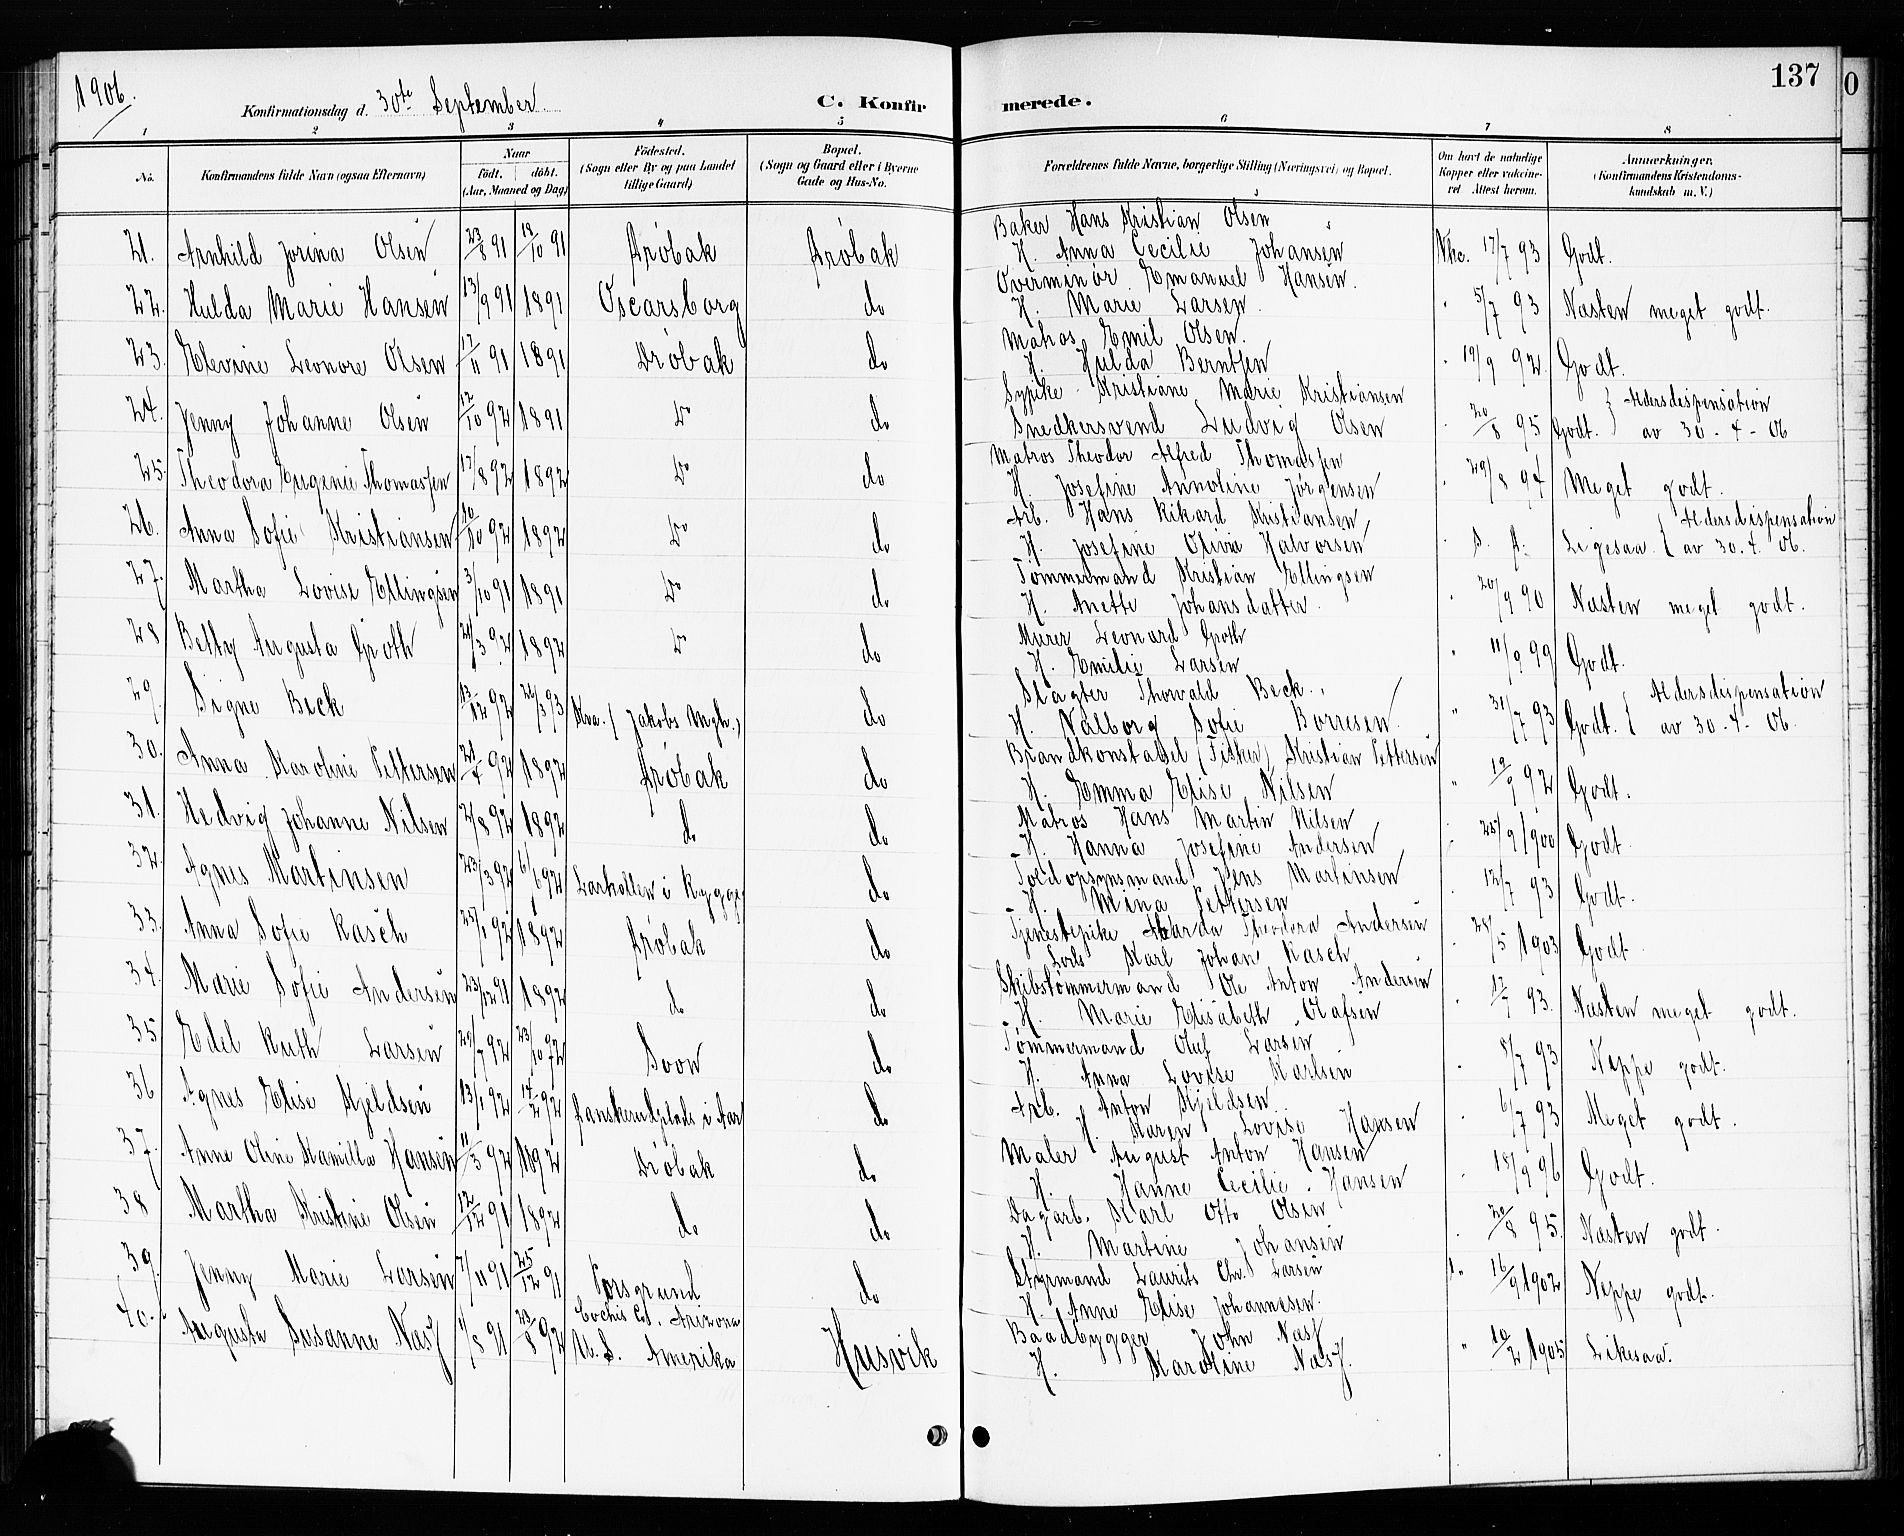 1906.
Konfirmationsdag d. 30te September.
C. Konfirmerede.
137
1 2 3 4 5 6 7 8
No.
Konfirmandens fulde Navn (ogsaa Efternavn)
Naar
födt. döbt.
(Aar, Maaned og Dag)
Födested.
(Sogn eller By og paa Landet
tillige Gaard)
Bopæl.
(Sogn og Gaard eller i Byerne
Gade og Hus-No.
Forældrenes fulde Navne, borgerlige Stilling (Næringsvei) og Bopæl.
Om havt de naturlige
Kopper eller vakcine-
ret Attest herom.
Anmærkninger.
(Konfirmandens Kristendoms-
kundskab m. V.)
21. Arnhild Jorina Olsen 23/8 91 12/10 91 Drøbak Drøbak Baker Hans Kristian Olsen
H. Anna Cecilie Johansen Vkc. 17/7 93 Godt.
22. Hulda Marie Hansen 13/9 91 1891 Oscarsborg do Overminør Emanuel Hansen.
H. Marie Larsen. " 5/7 93 Næsten meget godt.
23. Elevine Leonore Olsen 17/11 91 1891 Drøbak do Matros Emil Olsen.
H. Hulda Berntsen " 19/9 92. Godt.
24. Jenny Johanne Olsen 12/10 92 1891 Do do Sypike Kristiane Marie Kristiansen
Snedkersvend Ludvig Olsen " 20/8 95 Godt. } Aldersdispensation
av 30-4-06
25. Theodora Eugenie Thomassen 17/8 92 1892 Do do Matros Theodor Alfred Thomassen
H. Josefine Annoline Jørgensen " 29/8 94 Meget godt.
26. Anna Sofie Kristiansen 10/10 92 1892 Do do Arb. Hans Rikard Kristiansen
H. Josefine Olivia Halvorsen " s. d. Ligesaa. { Aldersdispensation
av 30.4.06.
27. Martha Lovise Ellingsen 3/10 91 1891 Do do Tømmermand Kristian Ellingsen
H. Anette Johansdatter. " 20/9 90 Næsten meget godt.
28 Betty Augusta Groth 21/3 92 1892 Do do Murer Leonard Groth
H. Emilie Larsen " 11/9 99 Godt.
29. Signe Beck 13/12 92 26/3 93 Kra. (Jakobs Mgh.) do Slagter Thorvald Beck.
H. Valborg Sofie Borresen. " 31/7 93 Godt. { Aldersdispensation
av 30-4-06.
30. Anna Karoline Pettersen 21/4 92 1892 Drøbak do Brandkonstabel (Fisker) Kristian Pettersen
H. Emma Elise Nilsen " 19/9 92 Godt.
31. Hedvig Johanne Nilsen 2/8 92 1892 do do Matros Hans Martin Nilsen
H. Hanna Josefine Andersen " 25/9 1900 Godt.
32. Agnes Martinsen 23/3 92 6/6 92 Larkollen i Rygge do Toldopsynsmand Jens Martinsen
H. Mina Pettersen " 12/7 93 Godt.
33. Anna Sofie Rasch 25/1 92 1892 Drøbak do Tjenestepike Theodora Andersen
Karl Johan Rasch " 25/5 1903 Godt
34. Marie Sofie Andersen 23/12 91 1892 do do Skibstømmermand Ole Anton Andersen
H. Marie Elisabeth Olafsen " 17/7 93. Næsten meget godt.
35 Edel Ruth Larsen 29/7 92 23/10 92 Soon do Tømmermand Oluf Larsen
H. Anna Lovise Karlsen " 8/7 93 Neppe godt.
36 Agnes Elise Kjeldsen 13/1 92 14/2 92 i Aas do Arb. Anton Kjeldsen
H. Maren Lovise Hansen " 6/7 93 Meget godt.
37. Anne Oline Kamilla Hansen 11/3 92 1892 Drøbak do Maler August Anton Hansen
H. Hanne Cecilie Hansen " 18/9 96 Godt.
38 Martha Kristine Olsen 12/12 91 1892 do do Dagarb. Karl Otto Olsen
H. Martine Johansen " 20/8 95. Næsten godt.
39. Jenny Marie Larsen 7/11 91 25/12 91 Porsgrund do Styrmand Laurits Chr. Larsen
H. Anne Elise Johannesen. " 16/9 1902 Neppe godt.
40. Augusta Susanne Næss 4/8 91 23/8 92 Cochis Co. Arizona
U. S. Amerika Husvik Baadbygger John Næss
H. Karoline Næss. " 10/2 1905 Likesaa.